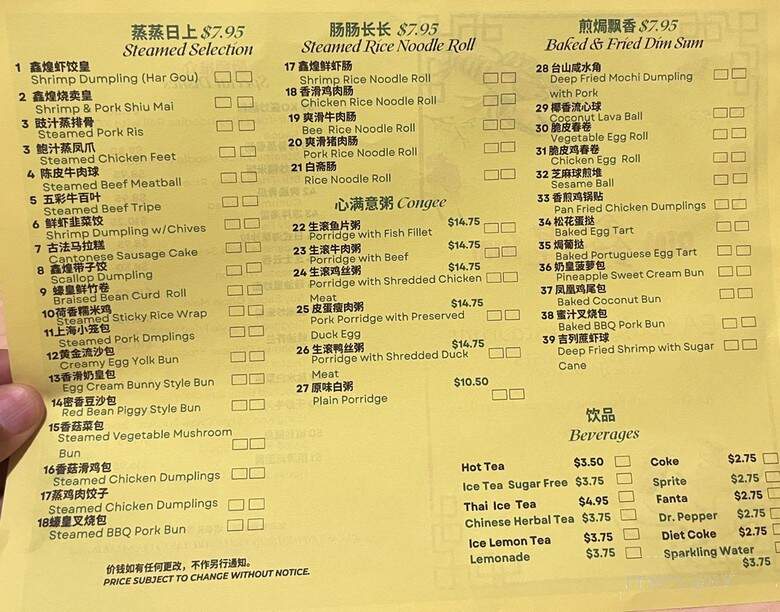 蒸蒸日上 $7.95
Steamed Selection
1 鑫煌虾饺皇
Shrimp Dumpling (Har Gou)
2 鑫煌烧卖皇
Shrimp & Pork Shiu Mai
3 豉汁蒸排骨
Steamed Pork Ris
3 鲍汁蒸凤爪
Steamed Chicken Feet
4 陈皮牛肉球
Steamed Beef Meatball
5 五彩牛百叶
Steamed Beef Tripe
6 鲜虾韭菜饺
Shrimp Dumpling w/Chives
7 古法马拉糕
Cantonese Sausage Cake
8 鑫煌带子饺
Scallop Dumpling
9 蠔皇鲜竹卷
Braised Bean Curd Roll
10荷香糯米鸡
Steamed Sticky Rice Wrap
11上海小笼包
Steamed Pork Dmplings
12黄金流沙包
Creamy Egg Yolk Bun
13香滑奶皇包
Egg Cream Bunny Style Bun
14密香豆沙包
Red Bean Piggy Style Bun
15香菇菜包
Steamed Vegetable Mushroom
Bun
16香菇滑鸡包
Steamed Chicken Dumplings
17蒸鸡肉饺子
Steamed Chicken Dumplings
18蠔皇叉烧包
Steamed BBQ Pork Bun
价钱如有任何更改，不作另行通知。
PRICE SUBJECT TO CHANGE WITHOUT NOTICE.
肠肠长长 $7.95
Steamed Rice Noodle Roll
17 鑫煌鲜虾肠
Shrimp Rice Noodle Roll
18 香滑鸡肉肠
Chicken Rice Noodle Roll
19 爽滑牛肉肠
Bee Rice Noodle Roll
20 爽滑猪肉肠
Pork Rice Noodle Roll
21 白斋肠
Rice Noodle Roll
心满意粥 Congee
22 生滚鱼片粥 $14.75
Porridge with Fish Fillet
23 生滚牛肉粥 $14.75
Porridge with Beef
24 生滚鸡丝粥 $14.75
Porridge with Shredded Chicken
Meat
25 皮蛋瘦肉粥 $14.75
Pork Porridge with Preserved
Duck Egg
26 生滚鸭丝粥 $14.75
Porridge with Shredded Duck
Meat
27 原味白粥 $10.50
Plain Porridge
煎焗飘香 $7.95
Baked & Fried Dim Sum
28 台山咸水角
Deep Fried Mochi Dumpling
with Pork
29 椰香流心球
Coconut Lava Ball
30 脆皮春卷
Vegetable Egg Roll
31 脆皮鸡春卷
Chicken Egg Roll
32 芝麻球煎堆
Sesame Ball
33 香煎鸡锅贴
Pan Fried Chicken Dumplings
34 松花蛋挞
Baked Egg Tart
35 焗葡挞
Baked Portuguese Egg Tart
36 奶皇菠萝包
Pineapple Sweet Cream Bun
37 凤凰鸡尾包
Baked Coconut Bun
38 蜜汁叉烧包
Baked BBQ Pork Bun
39 吉列蔗虾球
Deep Fried Shrimp with Sugar
Cane
饮品
Beverages
Hot Tea $3.50
Ice Tea Sugar Free $3.75
Thai Ice Tea $4.95
Chinese Herbal Tea $3.75
Ice Lemon Tea $3.75
Lemonade $3.75
Coke $2.75
Sprite $2.75
Fanta $2.75
Dr. Pepper $2.75
Diet Coke $2.75
Sparkling Water
$3.75